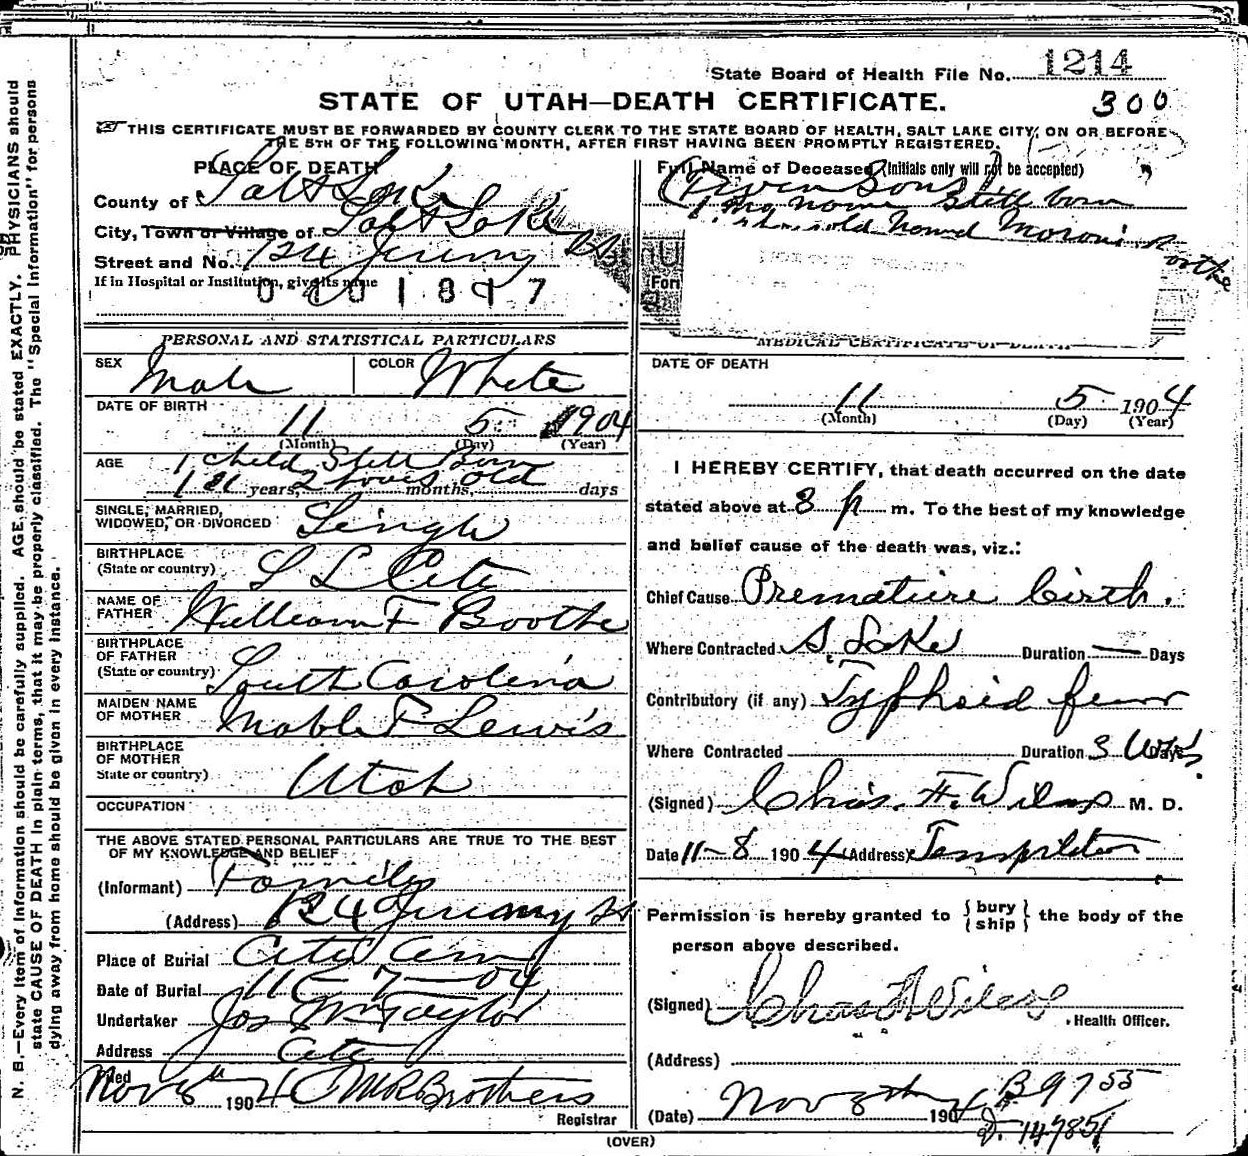 State Board of Health File No. 1214
STATE OF UTAH—DEATH CERTIFICATE.
300
THIS CERTIFICATE MUST BE FORWARDED BY COUNTY CLERK TO THE STATE BOARD OF HEALTH, SALT LAKE CITY, ON OR BEFORE
THE 5TH OF THE FOLLOWING MONTH, AFTER FIRST HAVING BEEN PROMPTLY REGISTERED.
PLACE OF DEATH
County of Salt Lake
City, Town or Village of Salt Lake
Street and No. 124 Jeremy St
If in Hospital or Institution, give its name
0401897
PERSONAL AND STATISTICAL PARTICULARS
SEX Male COLOR White
DATE OF BIRTH
11 5 1904
(Month) (Day) (Year)
AGE 1 child Still Born
1 years, 2 hours months, old days
SINGLE, MARRIED,
WIDOWED, OR DIVORCED Single
BIRTHPLACE
(State or country) S L City
NAME OF
FATHER William F Boothe
BIRTHPLACE
OF FATHER
(State or country) South Carolina
MAIDEN NAME
OF MOTHER Mable F Lewis
BIRTHPLACE
OF MOTHER
State or country) Utah
OCCUPATION
THE ABOVE STATED PERSONAL PARTICULARS ARE TRUE TO THE BEST
OF MY KNOWLEDGE AND BELIEF
(Informant) Family
(Address) 124 Jeremy St
Place of Burial City Cem
Date of Burial 11-7-04
Undertaker Jos Wm Taylor
Address City
Filed Nov 8th 1904 M R Brothers
Registrar
Full Name of Deceased (Initials only will not be accepted)
Twin Sons
1. no name Still born
1. 2 hrs old Named Moroni Boothe
For
MEDICAL CERTIFICATE OF DEATH
DATE OF DEATH
11 5 1904
(Month) (Day) (Year)
I HEREBY CERTIFY, that death occurred on the date
stated above at 8 p m. To the best of my knowledge
and belief cause of the death was, viz.:
Chief Cause Premature birth.
Where Contracted S. Lake Duration — Days
Contributory (if any) Typhoid fever
Where Contracted Duration 3 Wks. Days
(Signed) Chas. F. Wilcox M. D.
Date 11-8 1904 (Address) Templeton
Permission is hereby granted to {bury ship} the body of the
person above described.
(Signed) Chas F Wilcox
Health Officer.
(Address)
(Date) Nov 8th 1904 B 9755
D. 14785
(OVER)
N. B.—Every item of information should be carefully supplied. AGE should be stated EXACTLY. PHYSICIANS should
state CAUSE OF DEATH in plain terms, that it may be properly classified. The "Special Information" for persons
dying away from home should be given in every instance.